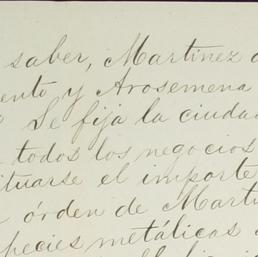 saber, Martinez
ento y Arosemena
Se fija la ciuda
todos los negocios
ituarse el importe
órden de Martí
species metálicas